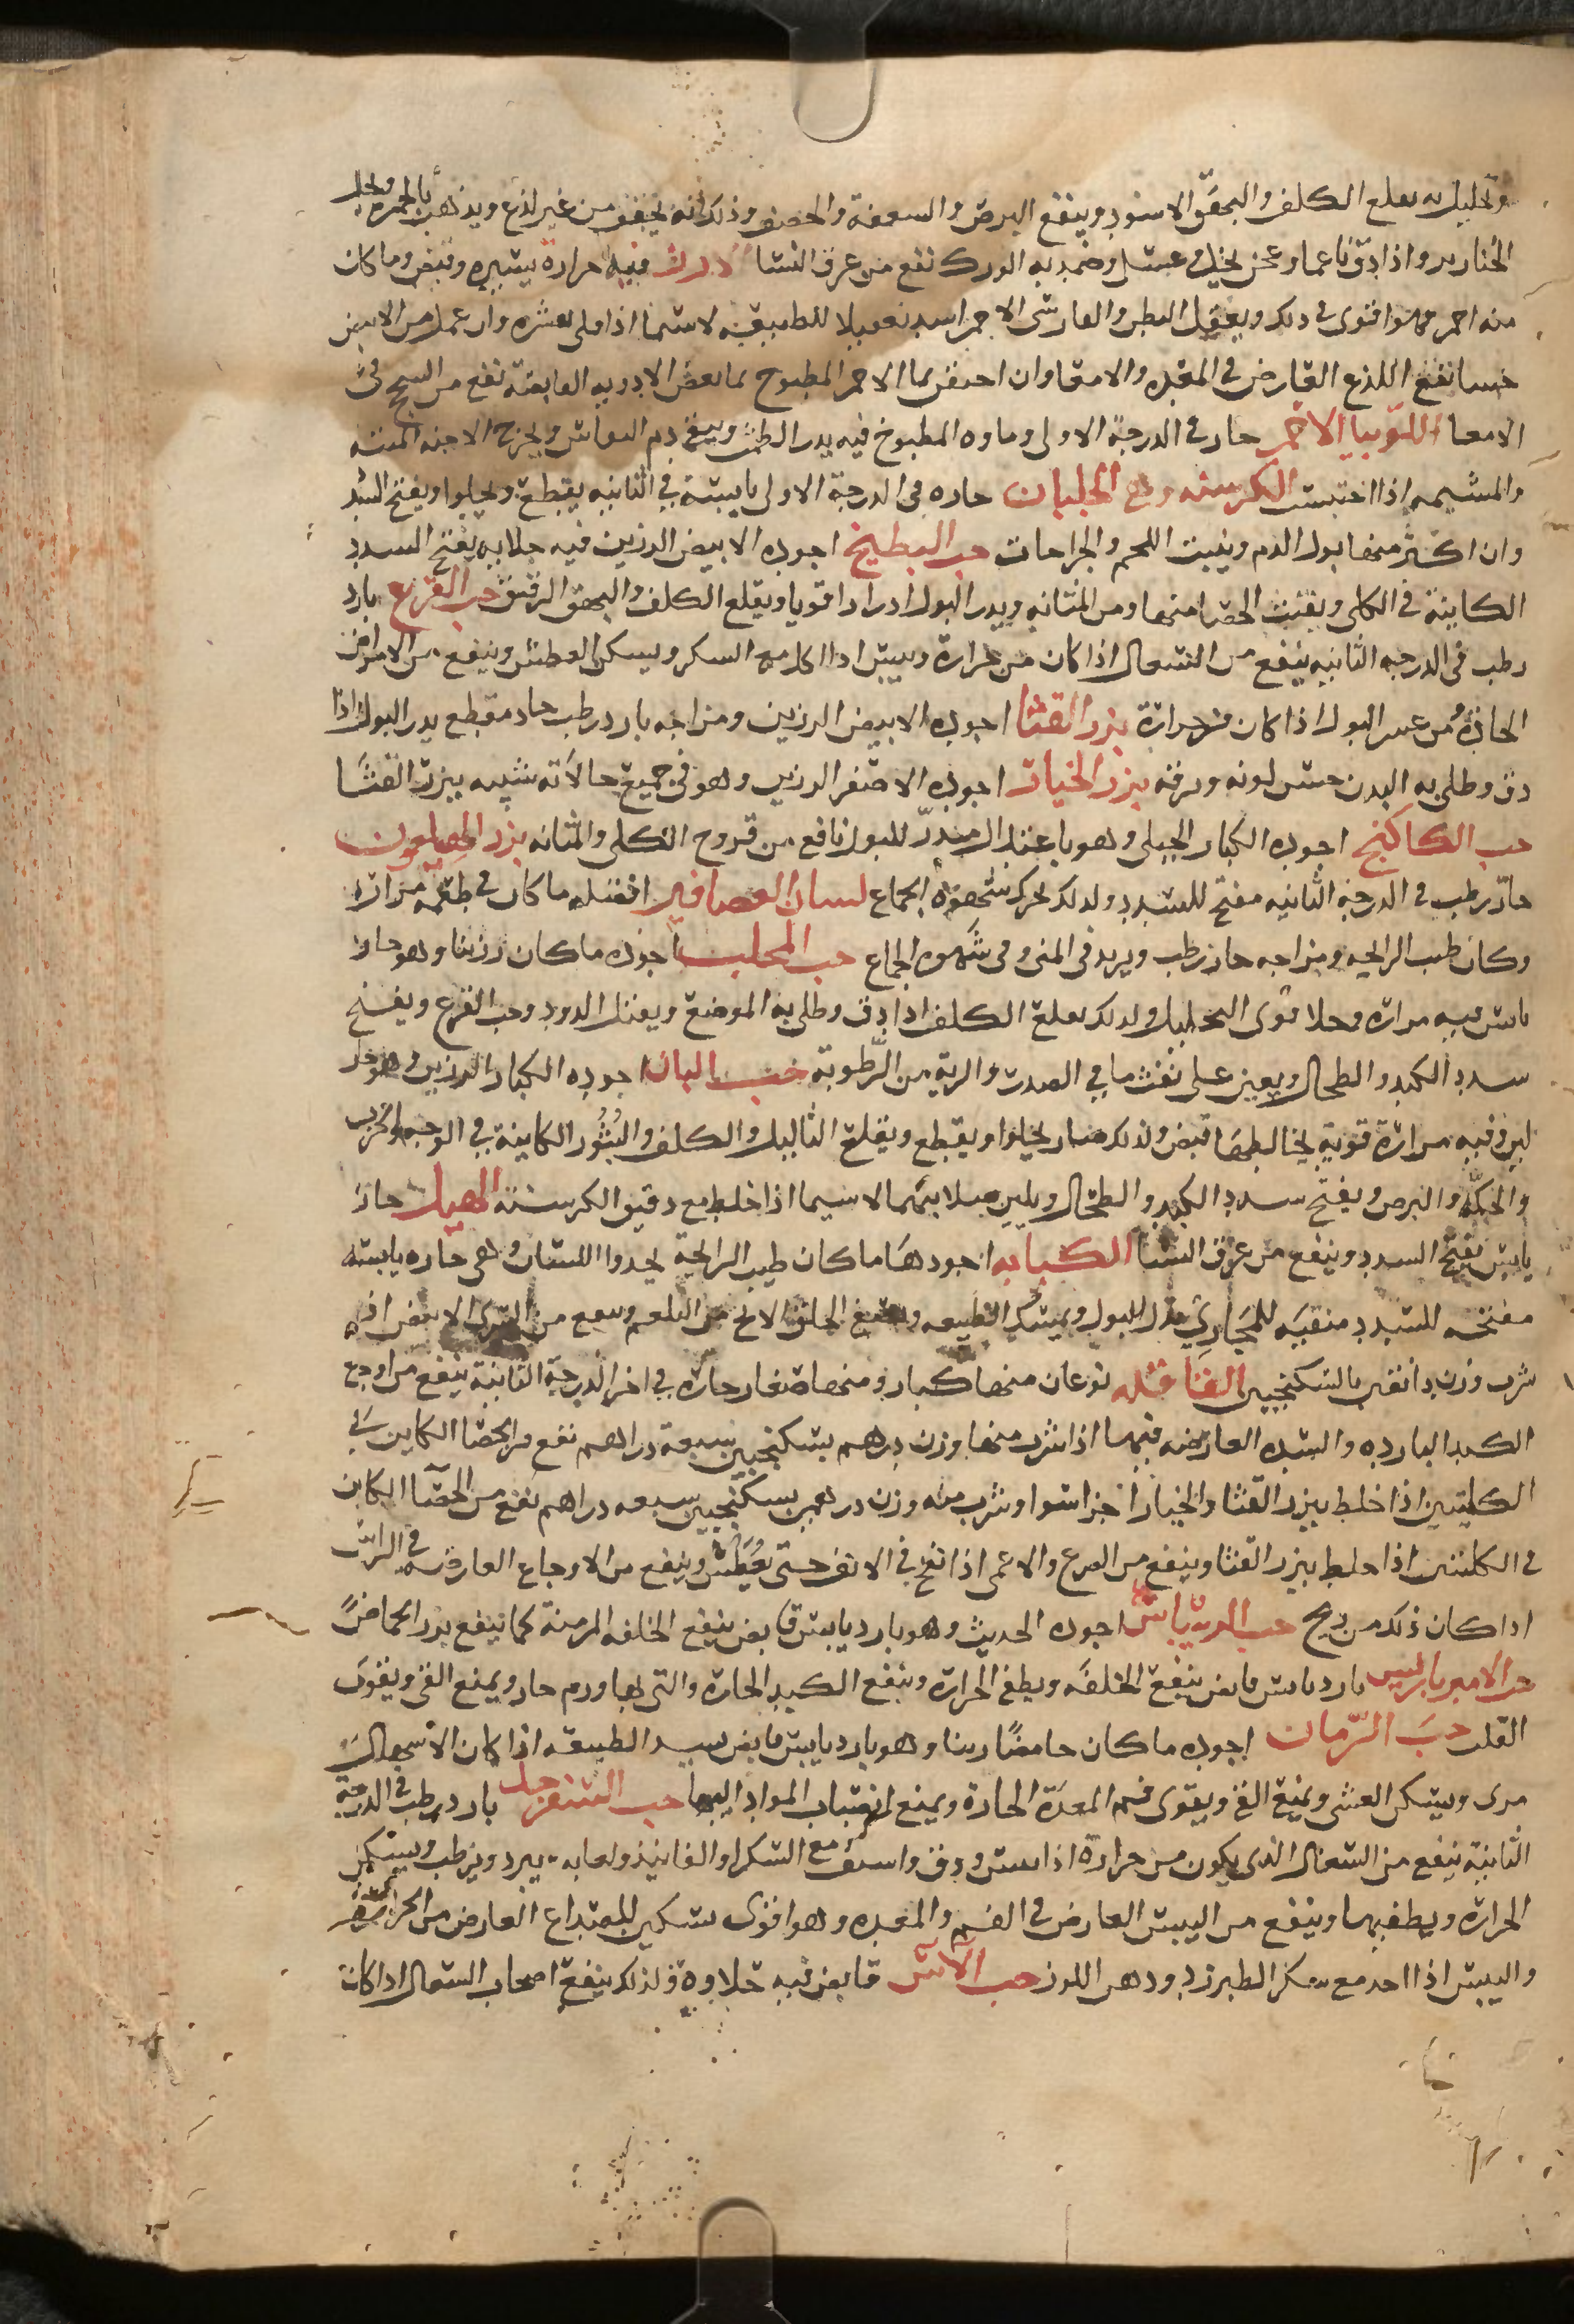 وتحليل به يقلع الكلف والبهق الاسود وينفع البرص والسعفة والحصف وذلك انه يجفف من غير لذع ويذهب بالجمرة ويحلل
الخنازير واذا دق ناعما وعجن بخل وعسل وضمد به الورك نفع من عرق النسا الارز فيه حرارة يسيره وقبض وما كان
منه احمر فهو اقوى في ذلك ويعقل البطن والفارسى الاحمر اشد تعقيلا للطبيعه لا سيما اذا قلى بقشره وان عمل من الابيض
حسا نفع اللذع العارض في المعده والامعا وان احتقن بما الاحمر المطبوخ بما بعض الادويه القابضة نفع من السحج في
الامعا اللوبيا الاحمر حار في الدرجة الاولى وماوه المطبوخ فيه يدر الطمث وينقى دم النفاس ويخرج الاجنه الميته
والمشيمه اذا احتبست الكرسنه وهى الجلبان حاره فى الدرجة الاولى يابسة في الثانيه يقطع ويجلوا ويفتح السدد
وان اكثر منها ابول الدم وينبت اللحم والجراحات حب البطيخ اجوده الابيض الرزين فيه جلا به يفتح السدد
الكاينة في الكلى ويفتت الحصا منها ومن المثانه ويدر البول ادرارا قويا ويقلع الكلف والبهق الرقيق حب القرع بارد
رطب فى الدرجه الثانيه ينفع من السعال اذا كان من حرارة ويبس اذا اكل مع السكر ويسكن العطش وينفع من الامراض
الحادة ومن عسر البول اذا كان من حرارة بزر القثا اجوده الابيض الرزين ومزاجه بارد رطب حاد مقطع يدر البول اذا
دق وطلى به البدن حسن لونه ورقه بزر الخيار اجوده الاصفر الرزين وهو فى جميع حالاته شبيه ببزر القثا
حب الكاكنج اجوده الكبار الجبلى وهو باعتدال مدر للبول نافع من قروح الكلى والمثانه بزر الهليون
حار رطب في الدرجة الثانيه مفتح للسدد ولذلك يحرك شهوة الجماع لسان العصافير افضله ما كان في طعمه مراره
وكان طيب الرايحه ومزاجه حار رطب ويزيد فى المنى وفى شهوه الجماع حب المحلب اجوده ما كان رزينا وهو حار
يابس فيه مراره وجلا قوى التحليل ولذلك يقلع الكلف اذا دق وطلى به الموضع ويقتل الدود وحب القرع ويفتح
سدد الكبد والطحال ويعين على نفث ما في الصدر والرية من الرطوبة حب البان اجوده الكبار الرزين وهو حار
لين وفيه مرارة قوية يخالطها قبض ولذلك صار يجلوا ويقطع ويقلع الثاليل والكلف والبثور الكاينة في الوجه والجرب
والحكة والبرص ويفتح سدد الكبد والطحال ويلين صلابتهما لا سيما اذا خلط مع دقيق الكرسنة الهيل حار
يابس يفتح السدد وينفع من عرق النسا الكبابه اجودها ما كان طيب الرايحة يحدوا اللسان وهى حاره يابسه
مفتحه للسدد منقيه للمجارى مدر للبول ويمسك الطبيعه وينفع الحلق الابح من البلغم وينفع من الشرى الابيض اذا
شرب وزن دانقين بالسكنجبين القاقله نوعان منها كبار ومنها صغار حارة في اخر الدرجة الثانية ينفع من اوجع
الكبد البارده والسدد العارضه فيها اذا شرب منها وزن درهم بسكنجبين سبعة دراهم نفع من الحصا الكاين في
الكليتين اذا خلط ببزر القثا والخيار اجزا سوا وشرب منه وزن درهمين بسكنجبين سبعه دراهم نفع من الحصا الكاين
في الكليتين اذا خلط ببزر القثا وينفع من الصرع والاغمى اذا نفخ في الانف حتى يعطس وينفع من الاوجاع العارضه في الراس
اذا كان ذلك من ريح حب الريباس اجوده الحديث وهو بارد يابس قابض ينفع الخلفه المزمنة كما ينفع بزر الحماض
حب الامير باريس بارد يابس قابض ينفع الخلفه ويطفى الحرارة وينفع الكبد الحارة والتى بها ورم حار ويمنع القى ويقوى
القلب حب الرمان اجوده ما كان حامضا رزينا وهو بارد يابس قابض يشد الطبيعه اذا كان الاسهال
مرى ويسكن الغشى ويمنع القى ويقوى فم المعدة الحارة ويمنع انصباب المواد اليها حب السفرجل بارد رطب في الدرجة
الثانية ينفع من السعال الذى يكون من حرارة اذا يبس ودق واستف مع السكر او الفانيذ ولعابه يبرد ويرطب ويسكن
الحرارة ويطفيها وينفع من اليبس العارض في الفم والمعده وهو اقوى تسكين للصداع العارض من الحرارة
واليبس اذا اخذ مع سكر الطبرزد ودهن اللوز حب الآس قابض فيه حلاوة ولذلك ينفع اصحاب السعال اذا كان